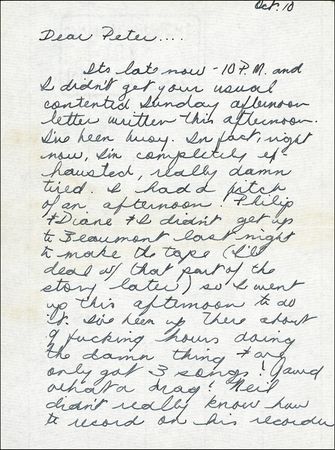 Oct. 10
Dear Peter....
Its late now - 10 P.M. and
I didn't get your usual
contented Sunday afternoon
letter written this afternoon.
I've been busy. In fact, right
now, I'm completely ex-
hausted, really damn
tired. I had a bitch
of an afternoon! Philip
& Diane & I didn't get up
to Beaumont last night
to make the tape (I'll
deal w/ that part of the
story later) so I went
up this afternoon to do
it. I've been up there about
9 fucking hours doing
the damn thing & we
only got 3 songs! Lawd
what a drag! Neil
didn't really know how
to record on his recorder